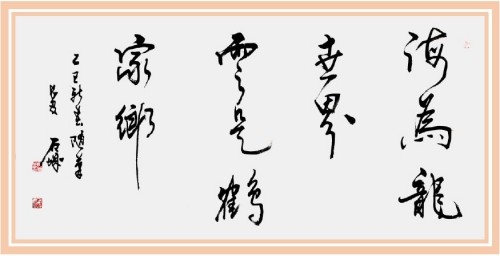 海為龍
世界
雲是鶴
家鄉
乙巳新春随筆